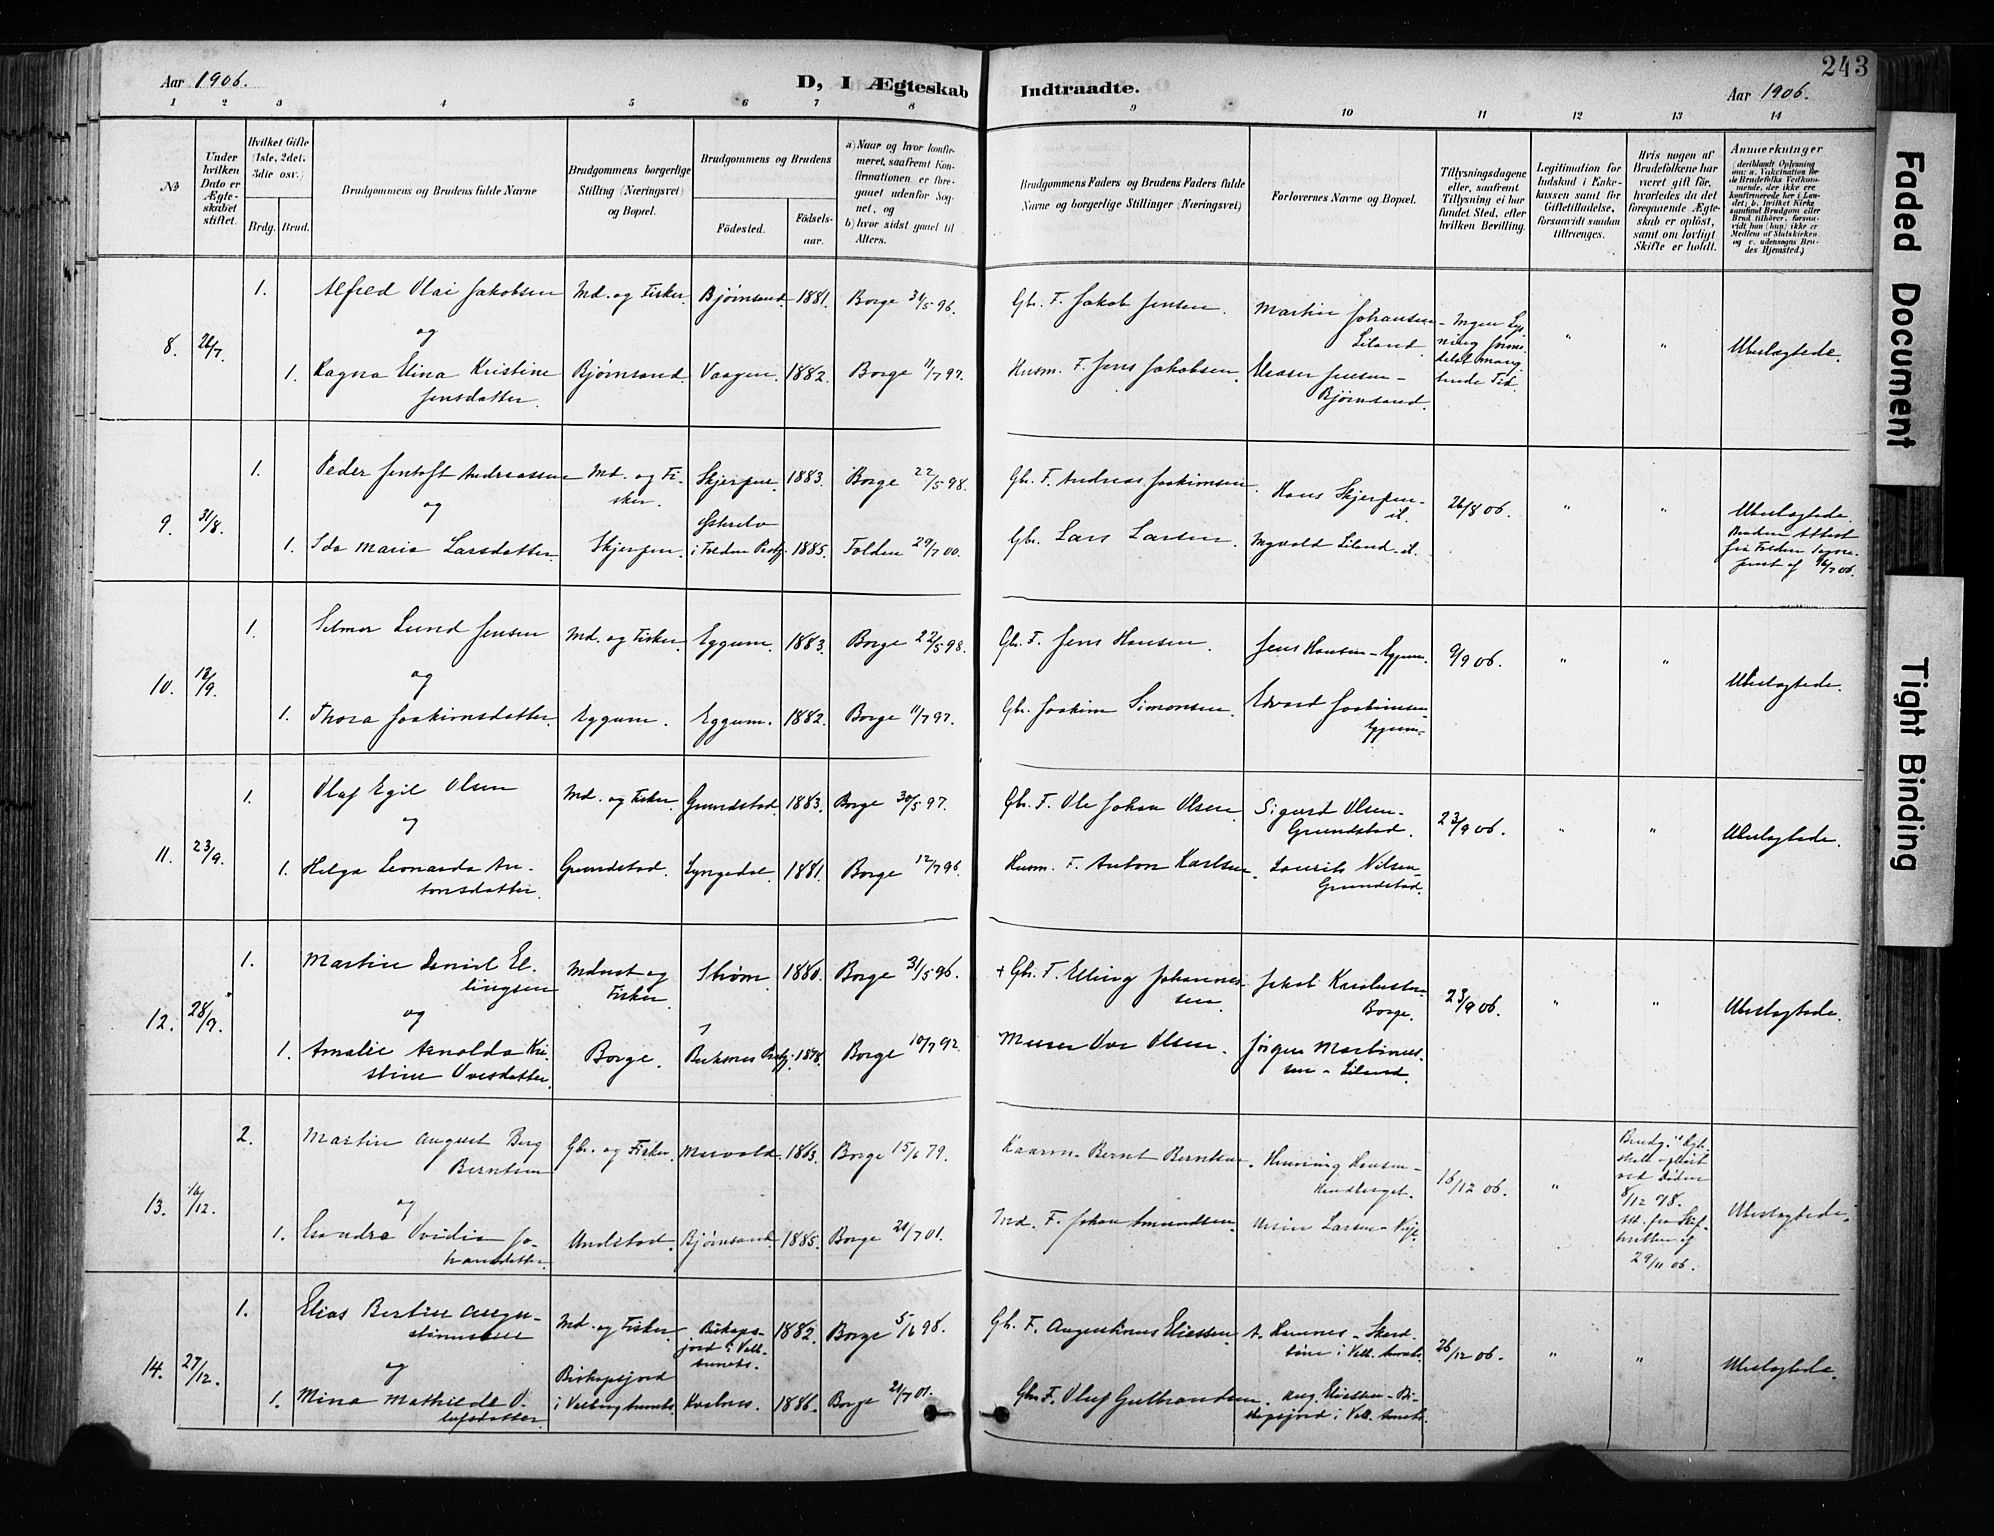 243
Aar 1906.
D, I Ægteskab
Indtraadte.
Aar 1906.
1 2 3 4 5 6 7 8 9 10 11 12 13 14
No
Under hvilken Dato er Ægteskabet stiftet.
Hvilket Gifte (1ste, 2det, 3die osv.)
Brdg. Brud.
Brudgommens og Brudens fulde Navne
Brudgommens borgerlige Stilling (Næringsvei) og Bopæl.
Brudgommens og Brudens
Födested.
Födselsaar.
a) Naar og hvor konfirmeret, saafremt Konfirmationen er foregaaet udenfor Sognet, og
b) hvor sidst gaaet til Alters.
Brudgommens Faders og Brudens Faders fulde Navne og borgerlige Stillinger (Næringsvei)
Forlovernes Navne og Bopæl.
Tillysningsdagene eller, saafremt Tillysning ei har fundet Sted, efter hvilken Bevilling.
Legitimation for Indskud i Enkekassen samt for Giftetilladelse, forsaavidt saadan tiltrænges.
Hvis nogen af Brudefolkene har været gift för, hvorledes da det foregaaende Ægteskab er oplöst, samt om lovligt Skifte er holdt.
Anmærkninger
8. 26/7.
1. Alfred Olai Jakobsen Md. og Fisker Bjørnsand 1881. Borge 31/5 96. Gbr. F. Jakob Jensen. Martin Johansen – Liland
og
1. Ragna Elina Kristine Jensdatter. Bjørnsand. Vaagan. 1882. Borge 11/7 97. Husm. F. Jens Jakobsen. Jensen – Bjørnsand.
Ingen Lysning formedelst manglende Tid.
" " Ubeslægtede.
9. 31/8.
1. Peder Jentoft Andreassen Md. og Fisker. Skjerpen. 1883. Borge 22/5 98. Gbr. F. Andreas Joakimsen. Hans Skjerpen – il. 26/8 06. " " Ubeslægtede.
og
1. Ida Maria Larsdatter. Skjerpen. i Folden Prgj. 1885. Folden 29/7 00. Gbr. Lars Larsen. Ingvald Liland – il.
Brudens Attest fra Folden Sogneprest af 16/7 06.
10. 18/9.
1. Selmer Lund Jensen Md. og Fisker. Eggum. 1883. Borge 22/5 98. Gbr. F. Jens Hansen. Jens Hansen – Eggum. 9/9 06. " " Ubeslægtede.
og
1. Thora Joakimsdatter. Eggum. Eggum. 1882. Borge 11/7 97. Gbr. Joakim Simonsen. Edvard Joakimsen – Eggum –
11. 23/9.
1. Olaf Egil Olsen Md. og Fisker. Grundstad. 1883. Borge 30/5 97. Gbr. F. Ole Johan Olsen. Sigurd Olsen – Grundstad. 23/9 06. " " Ubeslægtede.
og
1. Helga Leonarda Antonsdatter. Grundstad. Lyngedal. 1881. Borge 12/7 96. Husm. F. Anton Karlsen. Laurits Nilsen – Grundstad.
12. 28/9.
1. Martin Daniel Ellingsen Mdmst og Fisker. Strøm. 1880. Borge 31/5 96. + Gbr. F. Elling Johannessen. Jakob – Borge. 23/9 06. " " Ubeslægtede.
og
1. Amalie Arnolda Kristine Ovesdatter. Borge. Buksnes Prgj. 1878. Borge 10/7 92. Murer Ove Olsen. Jørgen Martinussen – Liland.
13. 16/12.
2. Martin August Berg Berntsen Gbr. og Fisker. Mervold. 1863. Borge 15/6 79. Kaarm. Bernt Berntsen. Henning Hansen – 16/12 06. "
Brudg. 1ste Ægteskab opløst ved Døden 8/12 98. Att. fra Skifteretten af 29/11 06.
Ubeslægtede.
og
1. Sandra Ovidia Johansdatter. Unstad. Bjørnsand. 1885. Borge 21/7 01. Ind. F. Johan Amundsen. Larsen –
14. 27/12.
1. Elias Bertin Augustinussen Md. og Fisker. Biskopsjord i Valb. annets. 1882. Borge 5/6 98. Gbr. F. Augustinus Eliassen. A. Hannes – 26/12 06. " " Ubeslægtede.
og
1. Mina Mathilde Olufsdatter. Biskopsjord Kvalnes. 1886. Borge 21/7 01. Gbr. F. Oluf Gulbrandsen. Aug. Eliassen – Biskopsjord
Faded Document
Tight Binding